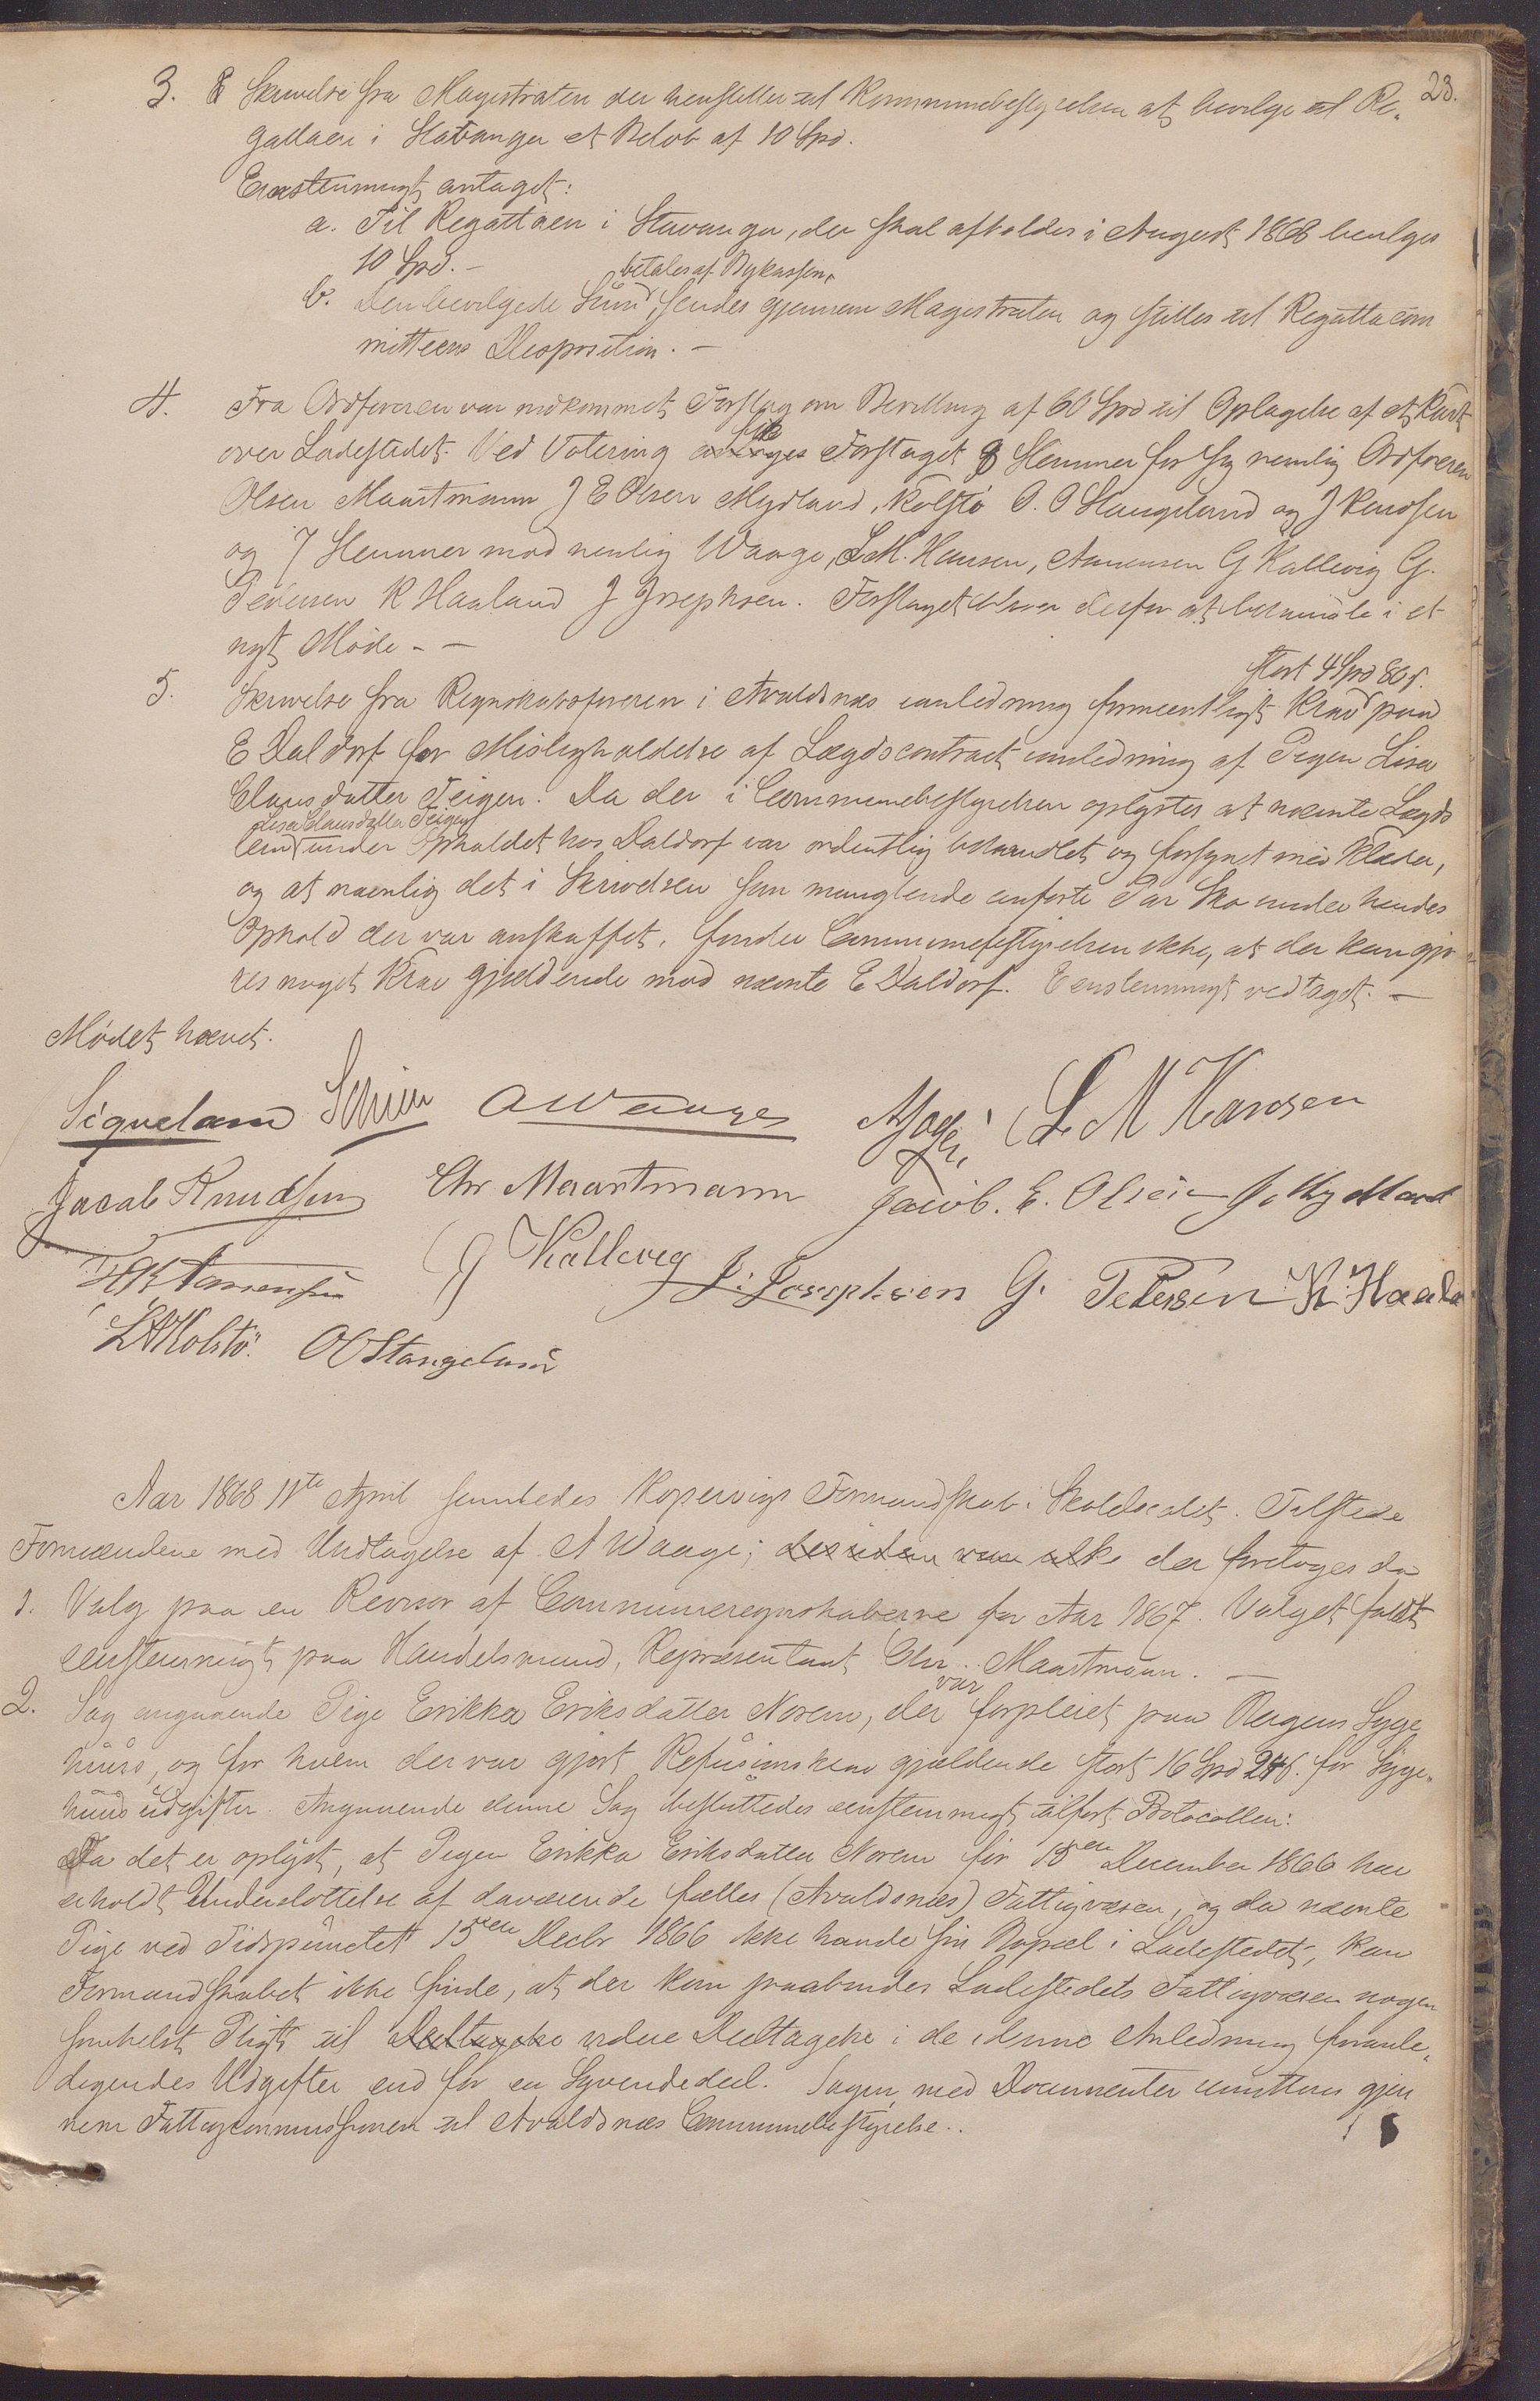 23.
3. Skrivelse fra Magistraten der henstiller til Kommunebestyrelsen at bevilge til Re-
gattaen i Stavanger et Beløb af 10 Spd.
Eenstemmigt antaget:
a. Til Regattaen i Stavanger, der skal afholdes i August 1868 bevilges
10 Spd. –
betales af Bykassen,
b. Den bevilgede Sum sendes gjennem Magistraten og stilles til Regattacom
mitteens Disposition. –
4. Fra Ordføreren var indkommet Forslag om Bevilling af 60 Spd til Optagelse af et Kart
fik
over Ladestedet. Ved Votering Forslaget 8 Stemmer for sig nemlig Ordføreren
Olsen Maartmann J E Olsen Mydland, Kolstø O. O Stangeland og J Knudsen
og 7 Stemmer mod nemlig Waage, L M. Hansen, Amensen G Kallevig G.
Petersen K Haaland J Josephsen. Forslaget bliver derfor at behandle i et
nyt Møde. –
stort 4 Spd 80 s.
5. Skrivelse fra Regnskabsføreren i Avaldsnæs anledning formeentligt Krav paa
E Daldorf for Misligholdelse af Lægdscontract anledning af Pigen Lisa
Clausdatter Teigen. Da der i Communebestyrelsen oplystes at nævnte Lægds
Lisa Clausdatter Teigen
lem under Opholdet hos Daldorf var ordentlig behandlet og forsynet med Klæder,
og at navnlig det i Skrivelsen som manglende anførte Par Sko under hendes
Ophold der var anskaffet, finder Communebestyrelsen ikke, at der kan gjø-
res noget Krav gjældende mod nævnte E Daldorf. Eenstemmigt vedtaget. –
Mødet hævet.
Siqveland Schiøtt A Waage L M Hansen
Jacob Knudsen Chr Maartmann Jacob. E. Olsen J. Mydland
G Kallevig J. Josephsen G. Petersen K. Haala
Kolstø. O O Stangeland
Aar 1868 11te April samledes Kopervigs Formandskab i Skolelocalet. Tilstede
Formændene med Undtagelse af A Waage; desuden var ikke der foretoges da
1. Valg paa en Revisor af Communeregnskaberne for Aar 1867. Valget faldt
eenstemmigt paa Handelsmand, Repræsentant Chr. Maartmann. –
var
2. Sag angaaende Pige Erikka Eriksdatter Norem, der forpleiet paa Bergens Syge
huus, og for hvem der var gjort Refusionskrav gjældende stort 16 Spd 24 s. for Syge-
huusudgifter. Angaaende denne Sag besluttedes eenstemmigt tilført Protocollen:
Da det er oplyst, at Pigen Erikka Eriksdatter Norem før 15en December 1866 har
erholdt Understøttelse af daværende fælles (Avaldsnæs) Fattigvæsen, og da nævnte
Pige ved Tidspunctet 15en Decbr 1866 ikke havde sin Bopæl i Ladestedet, kan
Formandskabet ikke finde, at der kan paabyrdes Ladestedets Fattigvæsen nogen
somhelst Pligt til Deeltagelse videre Deeltagelse i de i denne Anledning foranle-
digendes Udgifter end for en Syvendedeel. Sagen med Documenter remitteres gjen
nem Fattigcommissionen til Avaldsnæs Communebestyrelse..